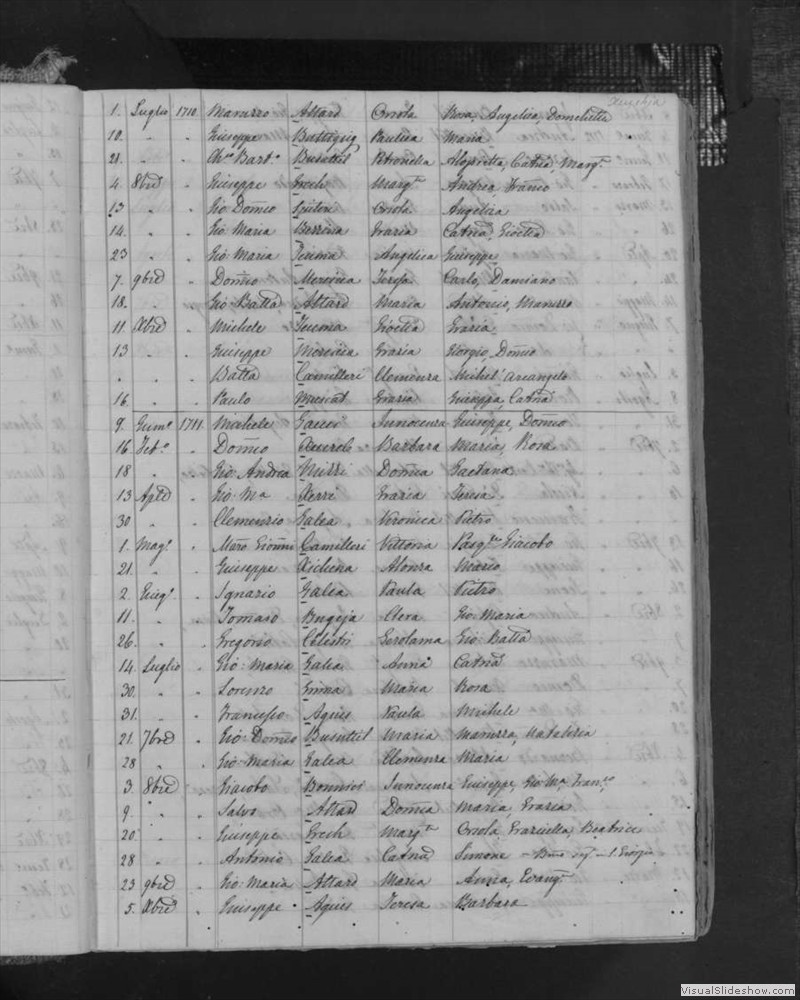 1. Luglio 1710 Manurro Attard Orsola Rosa, Angelica, Domchella
10. " " Giuseppe Buttigieg Paulica Maria
21. " " Chi.o Bart.o Busuttil Petronella Alojsetta, Catna, Marg.a
4. 8bre " Giuseppe Grech Marg.ta Andrea Franco
13 " " Gio Domco Spiteri Orsola Angelica
14. " " Gio Maria Bezzina Grazia Catna, Gioetta
23 " " Gio: Maria Teuma Angelica Giuseppe
7. 9bre " Domco Mercieca Teresa Carlo, Damiano
18. " " Gio: Batta Attard Maria Antonio, Manurro
11 Xbre " Michele Teuma Gioetta Grazia
13 " " Giuseppe Mercieca Grazia Giorgio, Domco
" " " Batta Camilleri Clemenza Michel' Arcangelo
16 " " Paulo Muscat Grazia Giuseppa, Catna
9. Genn.o 1711 Michele Gauci Innocenza Giuseppe, Domco
16 Feb.o " Domco Azzopardi Barbara Maria, Rosa
18 " " Gio: Andrea Mizzi Domca Gaetana
13 Aple " Gio: Ma Xerri Grazia Teresa
30 " " Clemenzio Galea Veronica Pietro
1. Mag.o " Maro Gioanni Camilleri Vittoria Pasq.le Giacobo
21. " " Giuseppe Xicluna Alonza Mario
2. Giug.o " Ignazio Galea Paula Pietro
11. " " Tomaso Bugeja Clera Gio: Maria
26. " " Gregorio Celestri Gerolama Gio: Batta
14. Luglio " Gio: Maria Galea Anna Catna
30. " " Lorenzo Grima Maria Rosa
31. " " Francesco Agius Paula Michele
21. 7bre " Gio: Domco Busuttil Maria Manurza, Natalizia
28 " " Gio: Maria Galea Clemenza Maria
3. 8bre " Giacobo Bonnici Innocenza Giuseppe, Gio Ma Fran.co
9. " " Salvo Attard Domca Maria, Grazia
20 " " Giuseppe Grech Marg.ta Orsola, Graziella, Beatrice
28 " " Antonio Galea Catna Simone
23 9bre " Gio: Maria Attard Maria Anna, Evang.ta
5. Xbre " Giuseppe Agius Teresa Barbara
VisualSlideshow.com